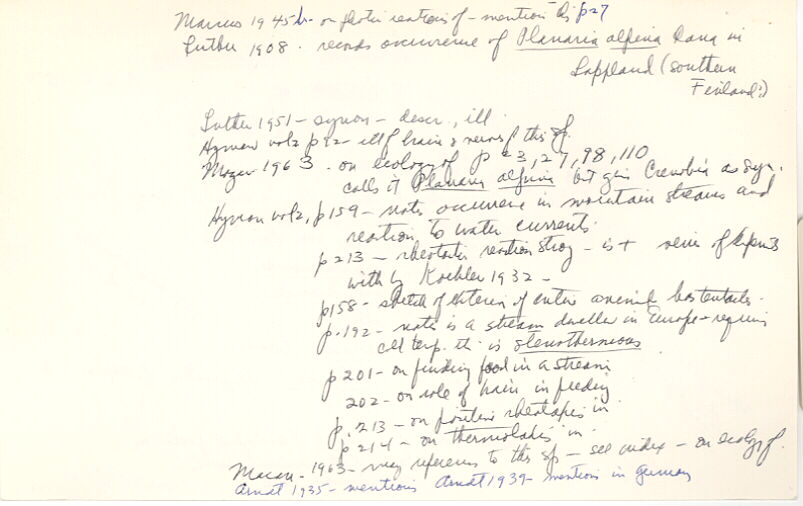 Marcus 1945b - on photic reactions of - mention by p27
Luther 1908 - records occurrence of Planaria alpina Dana in
Lappland (southern
Finland?)
Luther 1951 - synon - descr., ill.
Hyman vol 2 p 92 - ill of brain & nerves of this sp.
1963 - on ecology of p 23, 27, 98, 110
calls it Planaria alpina but gives Crenobia as syn.
Hyman vol 2, p 159 - notes occurrence in mountain streams and
reaction to water currents
p 213 - rheotactic reaction strong - is + series of expmts
with by Koehler 1932 -
p158 - sketch of exterior of entire animal has tentacles.
p. 192 - notes is a stream dweller in Europe - requires
cold temp. th. is stenothermous
p 201 - on finding food in a stream
202 - on role of brain in feeding
p. 213 - on positive rheotaxis in
p 214 - on thermotaxis in
Macan - 1963 - many references to this sp - see index - on ecology of.
Arndt 1935 - mentions Arndt 1939 - mentions in Germany